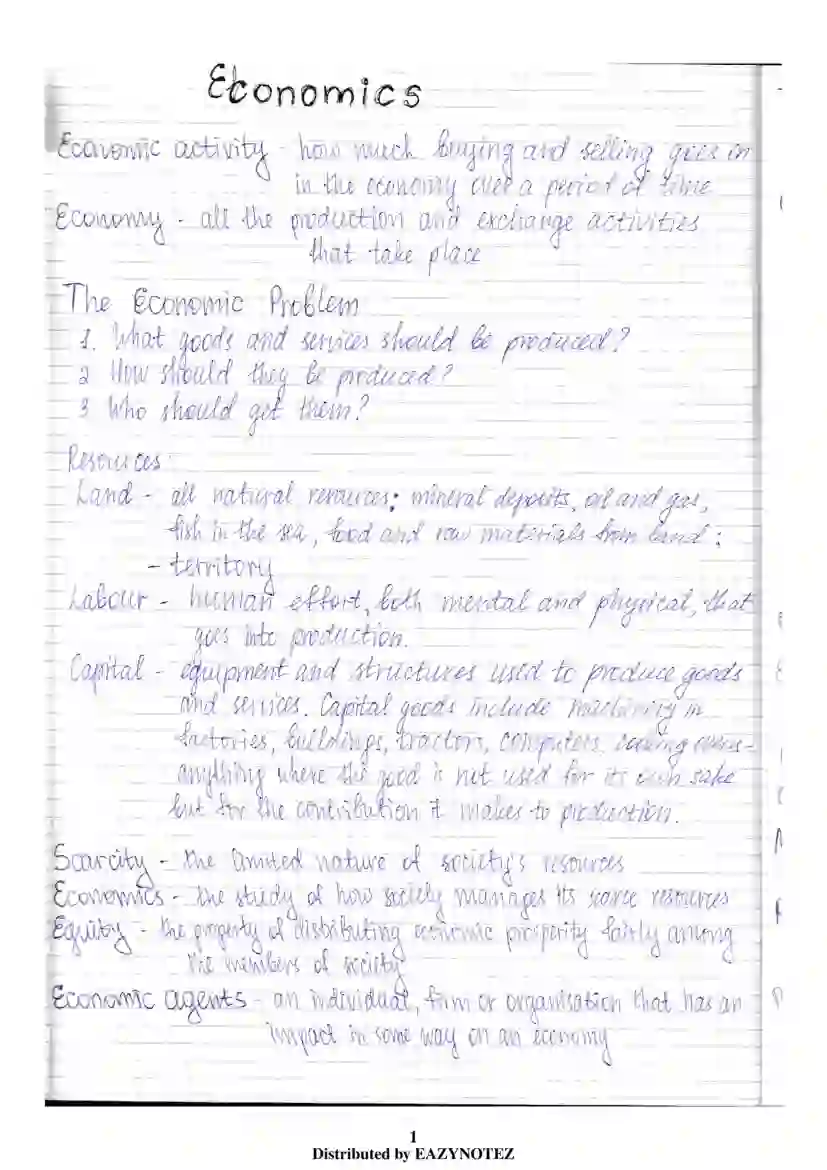 Economics
Economic activity - how much buying and selling goes in
in the economy over a period of time
Economy - all the production and exchange activities
that take place
The Economic Problem
1. What goods and services should be produced?
2 How should they be produced?
3 Who should get them?
Resources:
Land - all natural resources: mineral deposits, oil and gas,
fish in the sea, food and raw materials from land;
- territory
Labour - human effort, both mental and physical, that
goes into production.
Capital - equipment and structures used to produce goods
and services. Capital goods include machinery in
factories, buildings, tractors, computers,
anything where the good is not used for its own sake
but for the contribution it makes to production.
Scarcity - the limited nature of society's resources
Economics - the study of how society manages its scarce resources
Equity - the property of distributing economic prosperity fairly among
the members of society
Economic agents - an individual, firm or organisation that has an
impact in some way on an economy
1
Distributed by EAZYNOTEZ